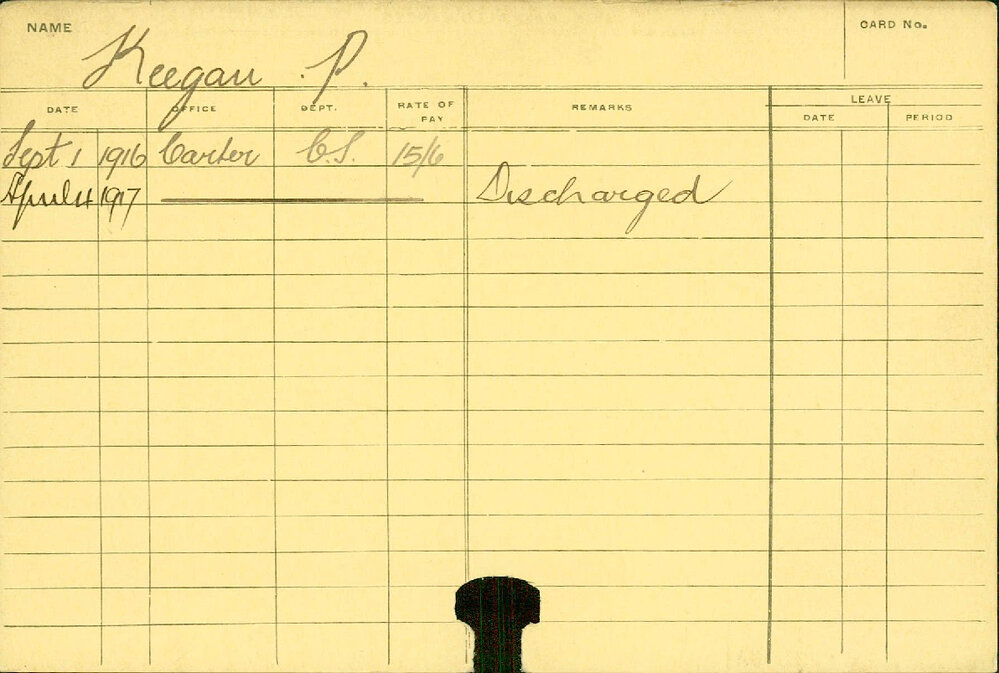 NAME Keegan . P. CARD No.
DATE OFFICE DEPT. RATE OF PAY REMARKS LEAVE
DATE PERIOD
Sept 1 1916 Carter C.S. 15/6
April 4 1917 Discharged